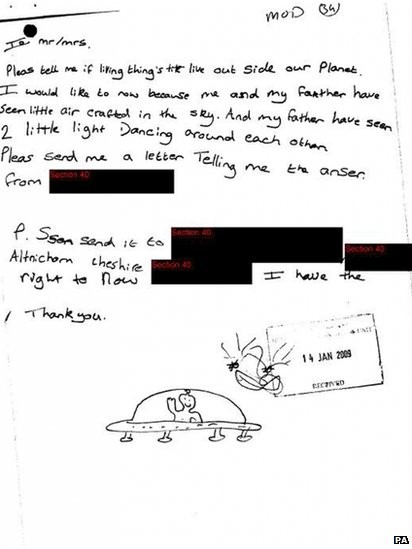 MOD 34
To mr/mrs.
Pleas tell me if living thing's live out side our Planet.
I would like to now because me and my farther have
seen little air crafted in the sky. And my father have seen
2 little light Dancing around each other
Pleas send me a letter Telling me the anser
from Section 40
P. S send it to Section 40
Section 40
Altrichom cheshire Section 40
right to Now I have the
Thankyou.
14 JAN 2009
RECEIVED
PA